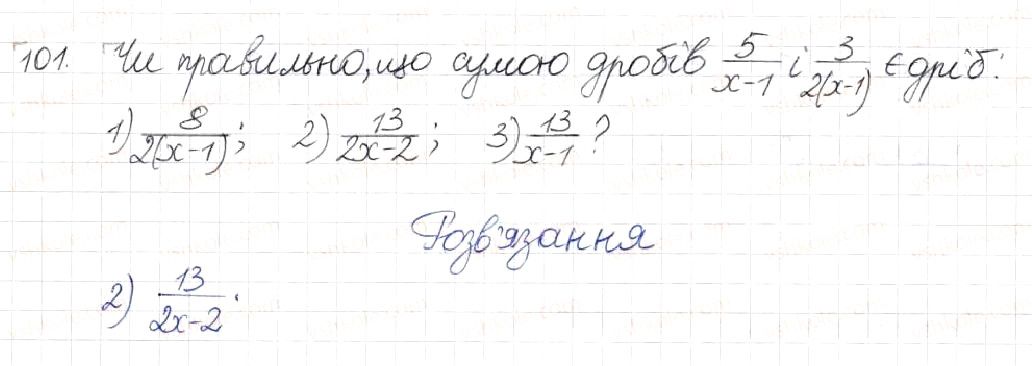 101. Чи правильно, що сумою дробів 5/(x-1) і 3/(2(x-1)) є дріб:
1) 8/(2(x-1)); 2) 13/(2x-2); 3) 13/(x-1) ?
Розв'язання
2) 13/(2x-2).